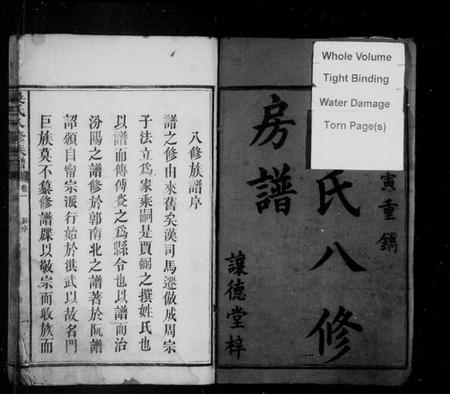 Whole Volume
Tight Binding
Water Damage
Torn Page(s)
寅重鐫
氏八修
房譜
讓德堂梓
八修族譜序
譜之修由來舊矣漢司馬遷倣成周宗
子法立爲家乘嗣是賈弼之撰姓氏也
以譜而傳傅袞之爲縣令也以譜而治
汾陽之譜修於郭南北之譜著於阮譜
詔頒自甯宗派行始於洪武以故名門
巨族莫不纂修譜牒以敬宗而收族而
吳氏八修族譜
卷一